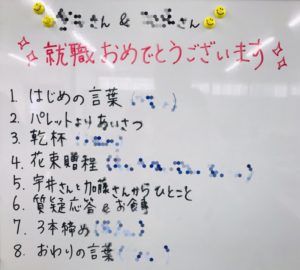 さん & さん
就職おめでとうございます
1. はじめの言葉 ( )
2. パレットよりあいさつ
3. 乾杯 ( )
4. 花束贈程 ( )
5. 宇井さんと加藤さんからひとこと
6. 質疑応答 & お食事
7. 3本締め ( )
8. おわりの言葉 ( )